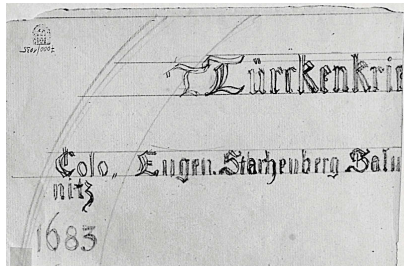 Türckenkrie
Colo„ Eugen. Starhenberg Salu
nitz
1683